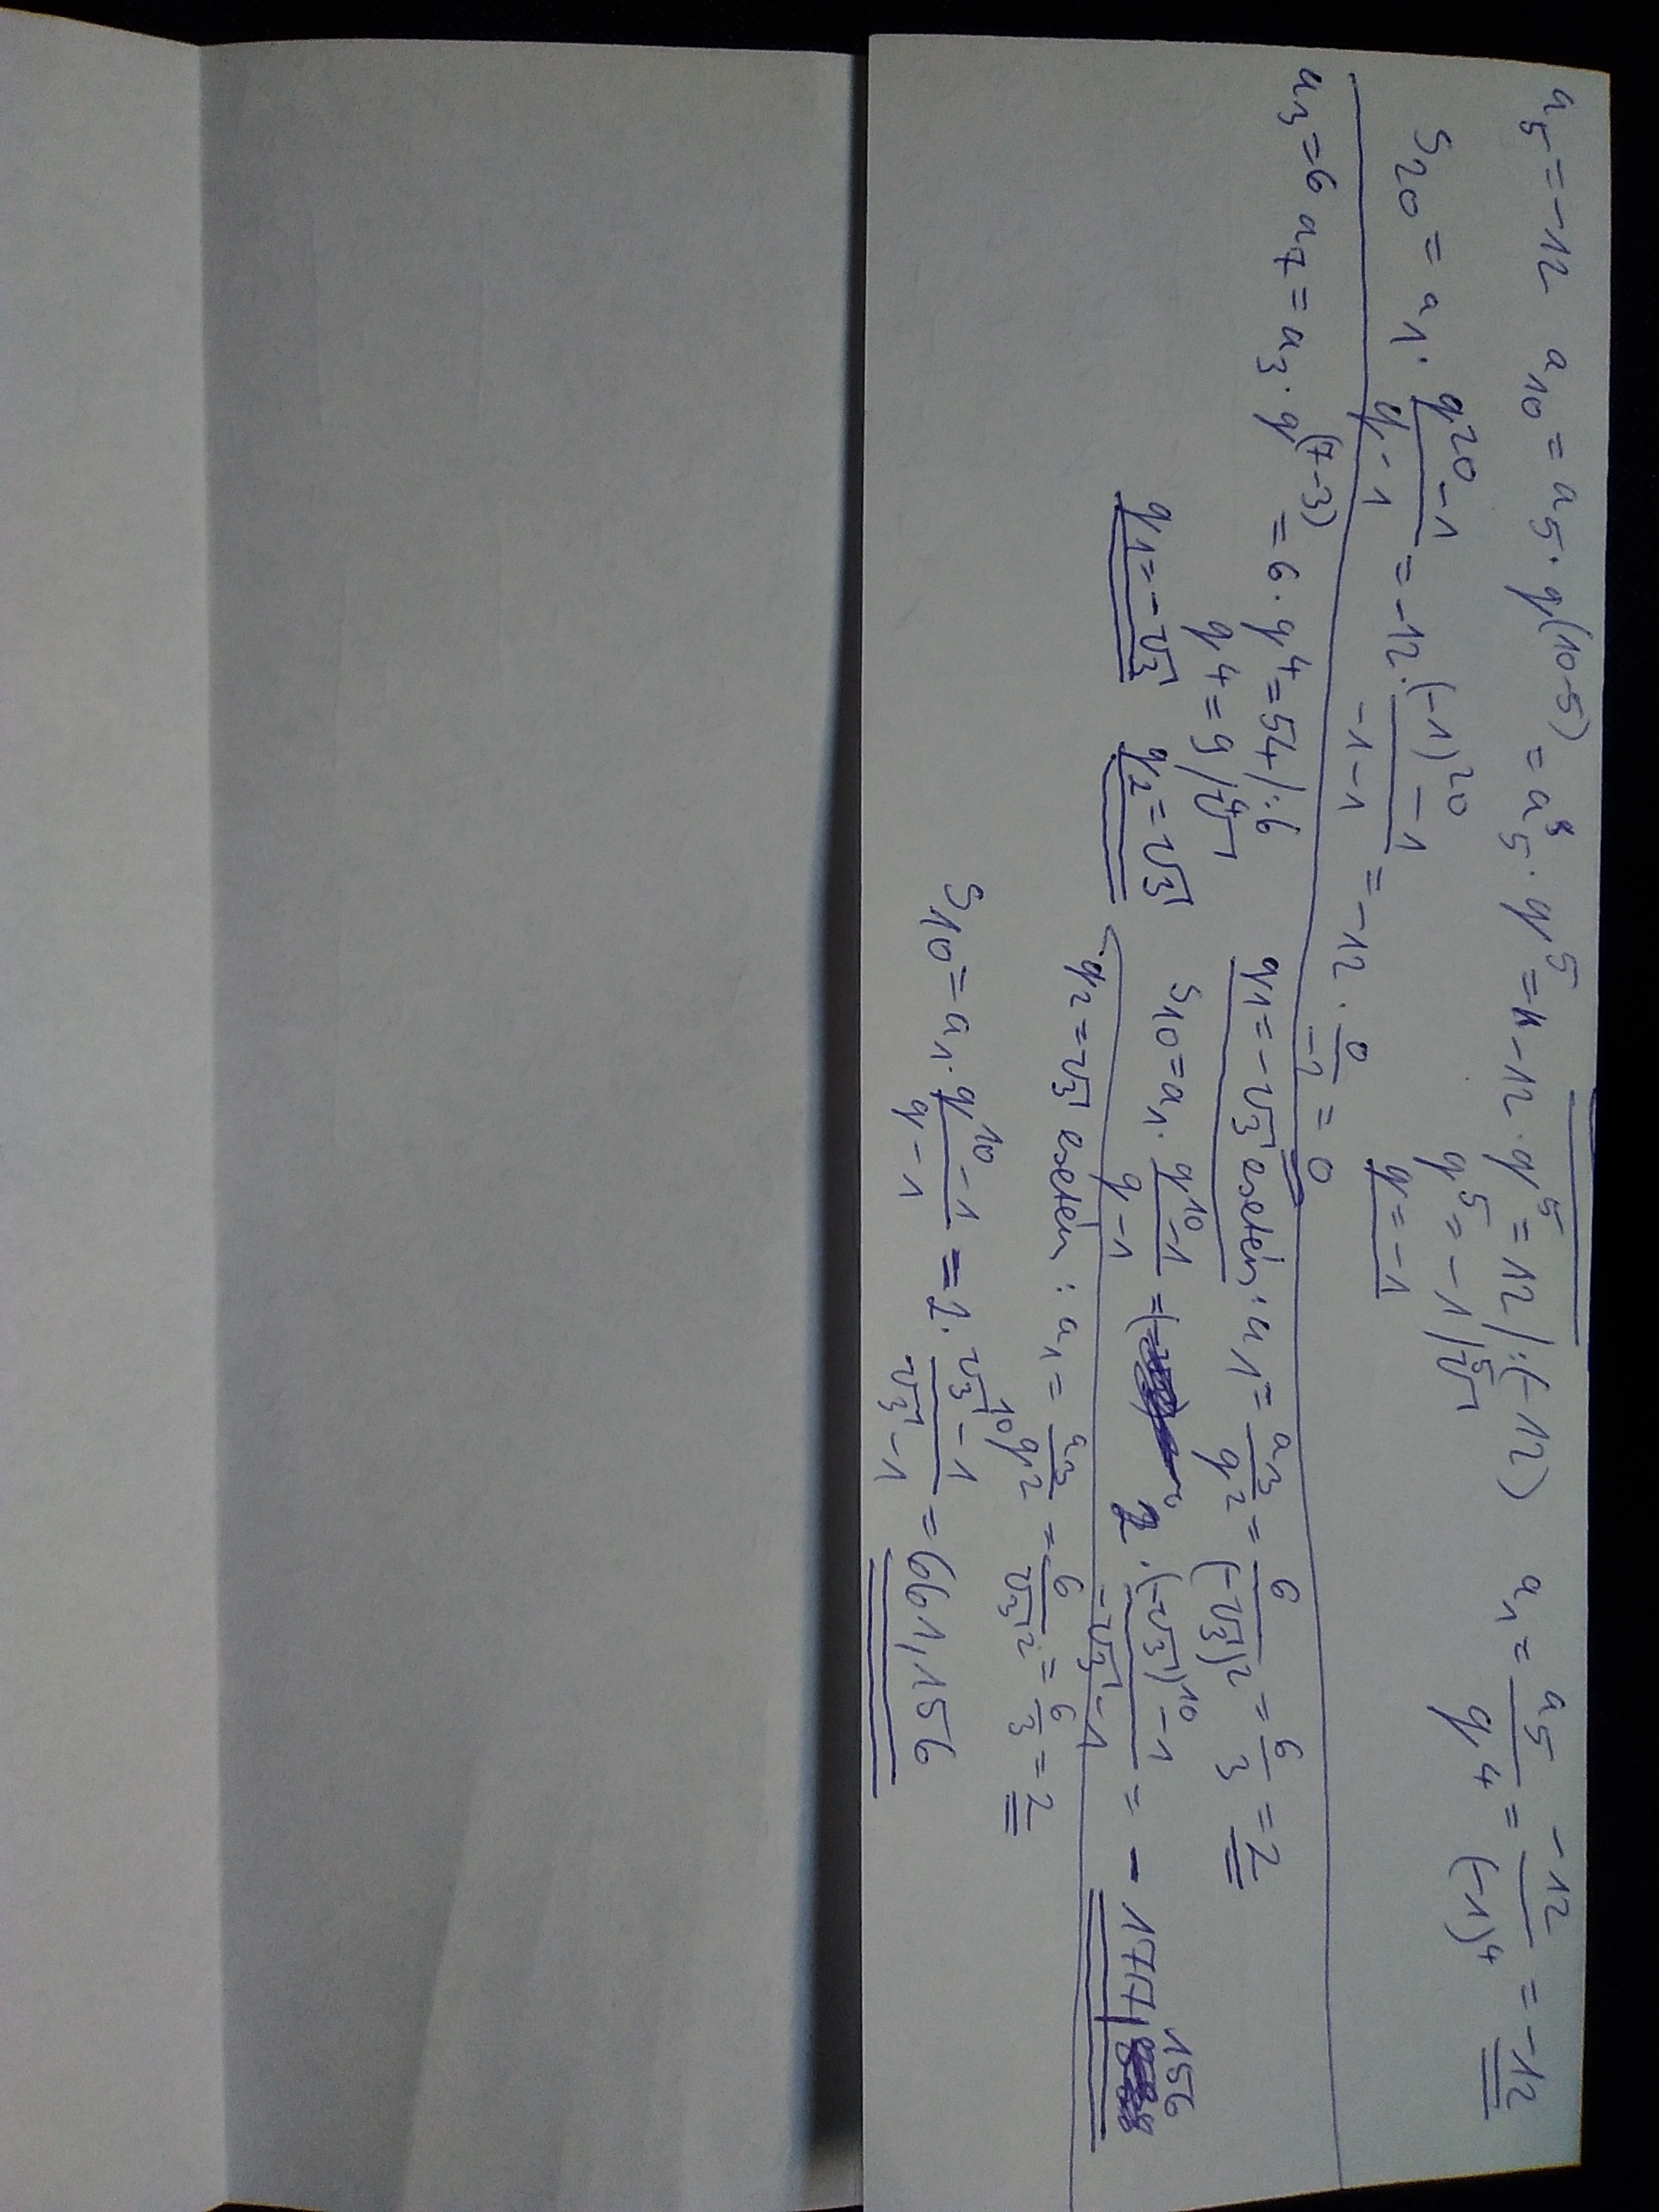 a₅=-12 a₁₀=a₅·q⁽¹⁰⁻⁵⁾=a₅·q⁵=-12·q⁵=12/:(-12) a₁=a₅/q⁴=-12/(-1)⁴=-12
q⁵=-1/⁵√
q=-1
S₂₀=a₁·(q²⁰-1)/(q-1)=-12·((-1)²⁰-1)/(-1-1)=-12·0/-2=0
a₃=6 a₇=a₃·q⁽⁷⁻³⁾=6·q⁴=54/:6
q⁴=9/⁴√
q₁=-√3 q₂=√3
q₁=-√3 esetén: a₁=a₃/q²=6/(-√3)²=6/3=2
S₁₀=a₁·(q¹⁰-1)/(q-1)=2·((-√3)¹⁰-1)/(-√3-1)=-177,156
q₂=√3 esetén: a₁=a₃/q²=6/√3²=6/3=2
S₁₀=a₁·(q¹⁰-1)/(q-1)=2·(√3¹⁰-1)/(√3-1)=661,156